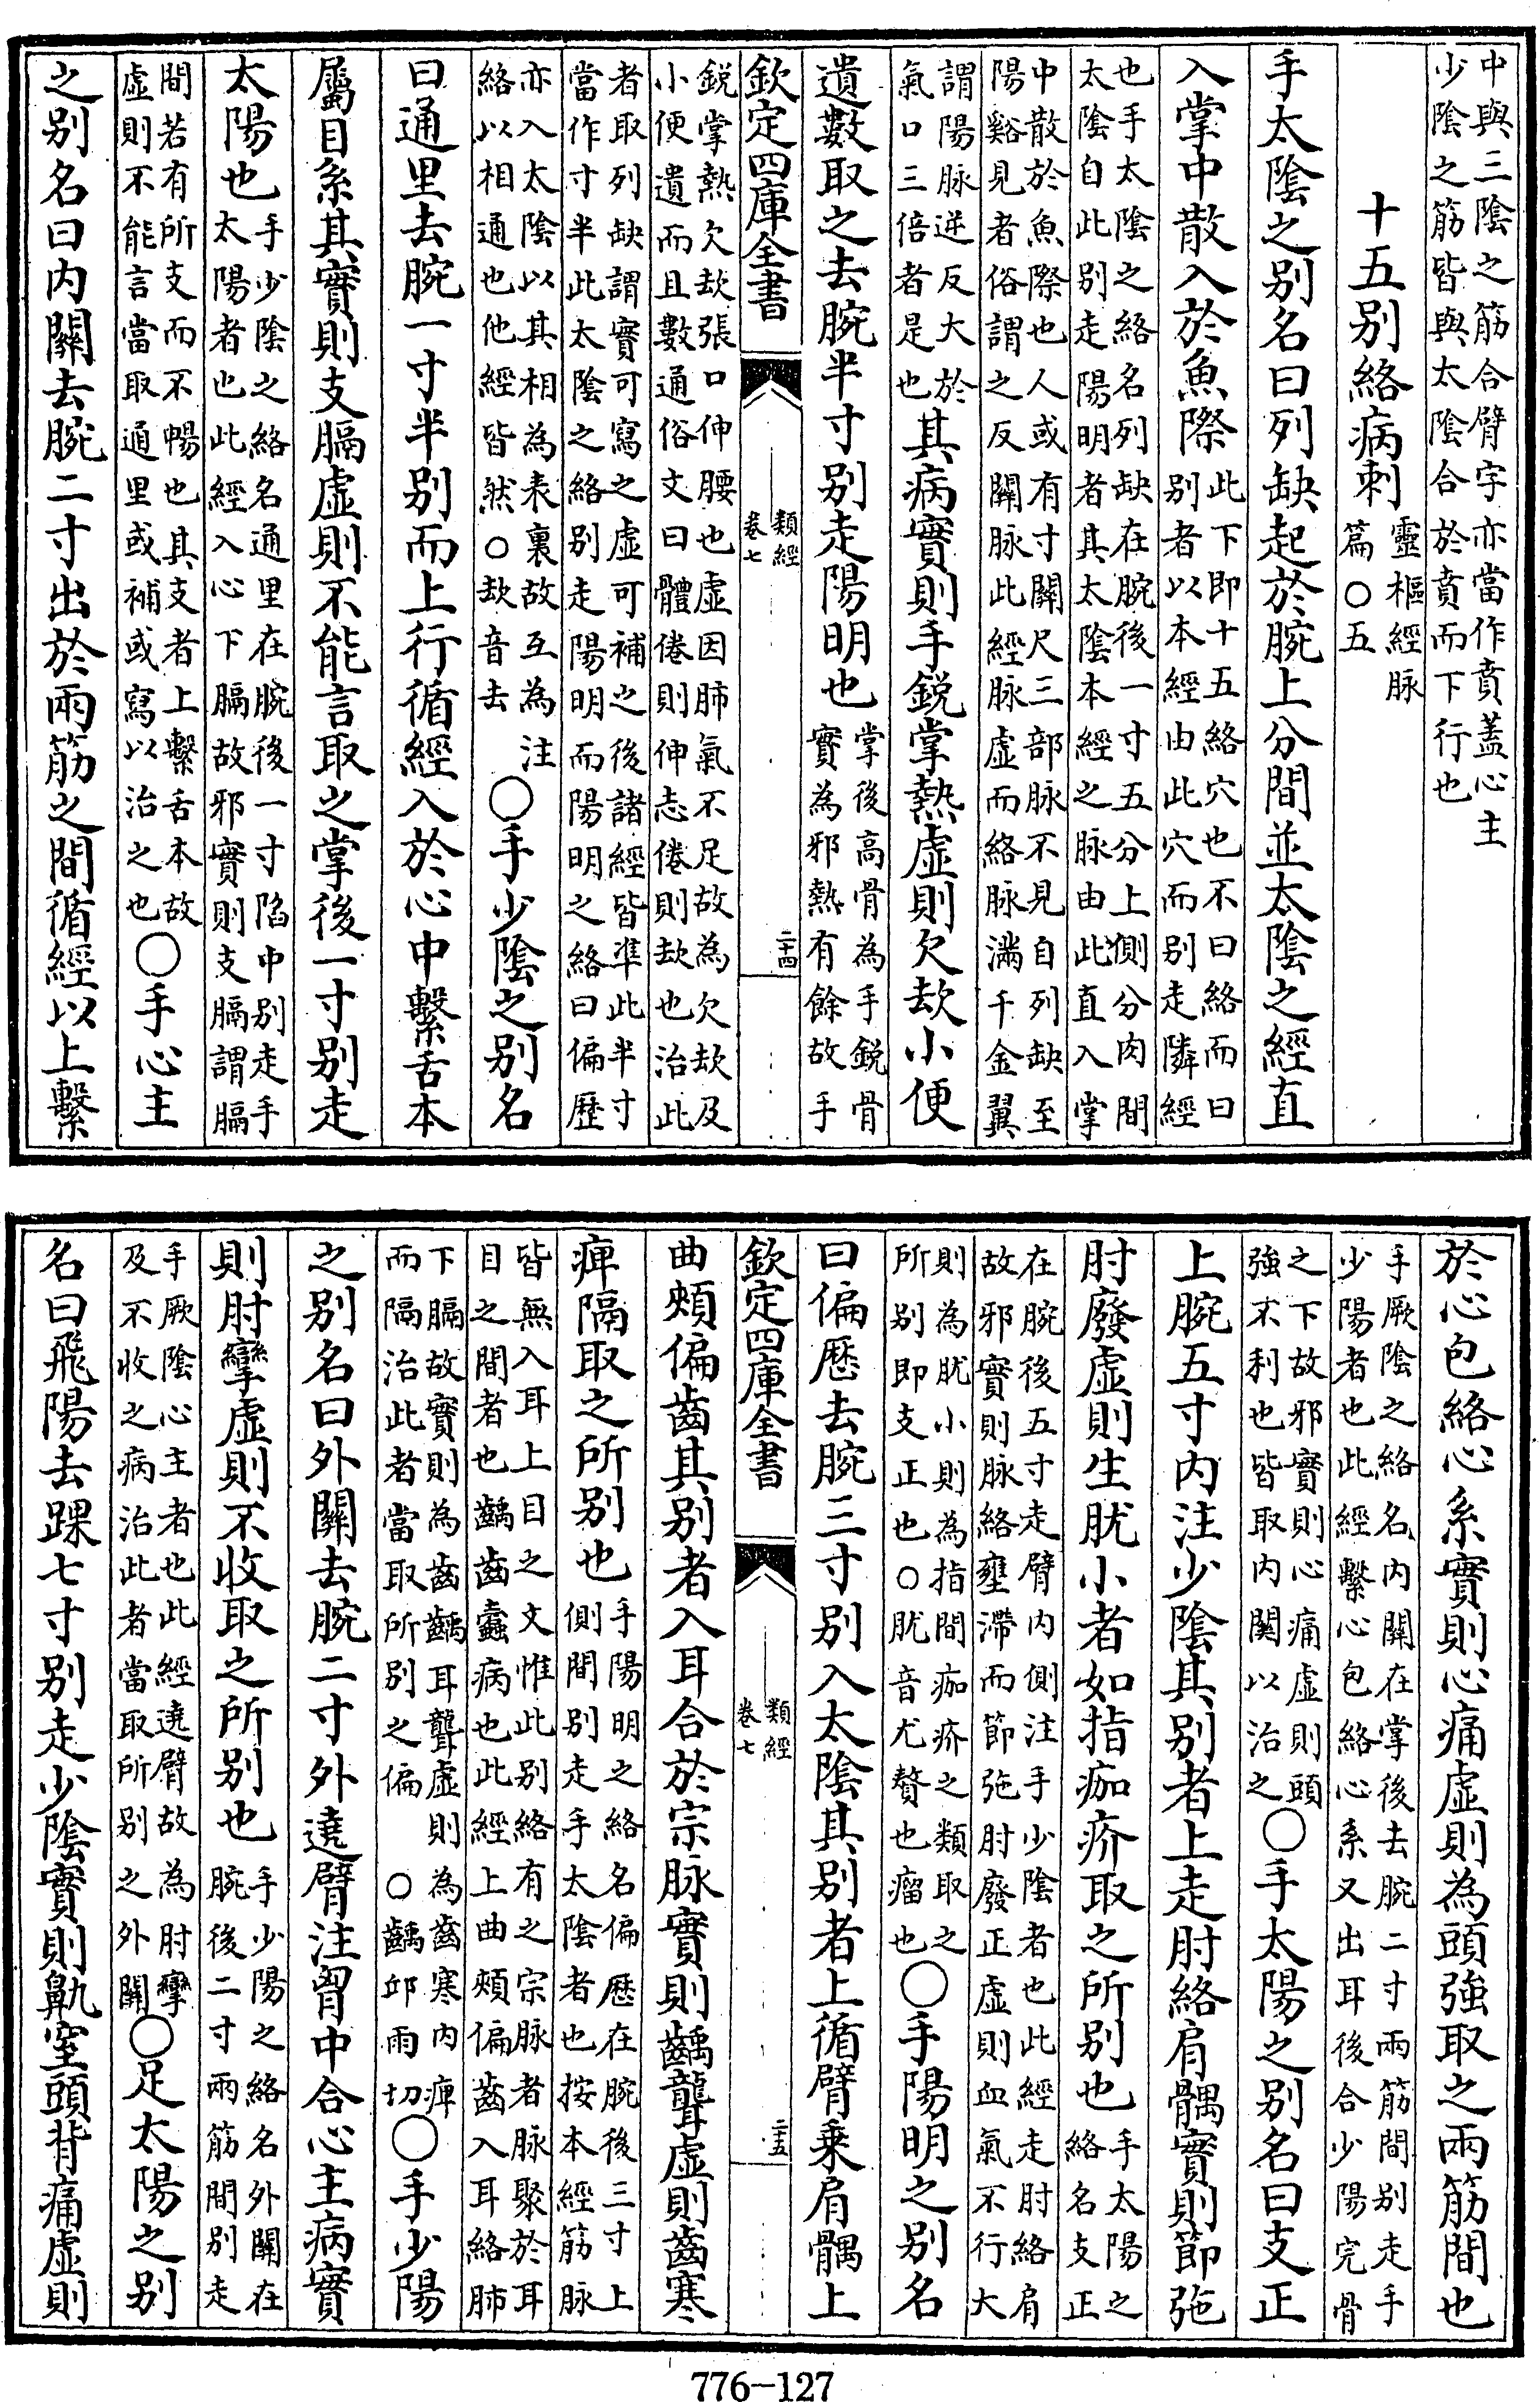 中與三陰之筋合臂字亦當作賁蓋心主
少陰之筋皆與太陰合於賁而下行也
十五别絡病刺靈樞經脉
篇○五
手太陰之别名曰列缺起於腕上分間並太陰之經直
入掌中散入於魚際此下即十五絡穴也不曰絡而曰
别者以本經由此穴而别走隣經
也手太陰之絡名列缺在腕後一寸五分上側分肉間
太陰自此别走陽明者其太陰本經之脉由此直入掌
中散於魚際也人或有寸關尺三部脉不見自列缺至
陽谿見者俗謂之反關脉此經脉虚而絡脉滿千金翼
謂陽脉逆反大於
氣口三倍者是也其病實則手鋭掌熱虚則欠㰦小便
遺數取之去腕半寸别走陽明也掌後高骨為手鋭骨
實為邪熱有餘故手
欽定四庫全書
類經
卷七
二十四
鋭掌熱欠㰦張口伸腰也虚因肺氣不足故為欠㰦及
小便遺而且數通俗文曰體倦則伸志倦則㰦也治此
者取列缺謂實可寫之虚可補之後諸經皆準此半寸
當作寸半此太陰之絡别走陽明而陽明之絡曰偏歷
亦入太陰以其相為表裏故互為注
絡以相通也他經皆然○㰦音去○手少陰之别名
曰通里去腕一寸半别而上行循經入於心中繫舌本
屬目系其實則支膈虚則不能言取之掌後一寸别走
太陽也手少陰之絡名通里在腕後一寸陷中别走手
太陽者也此經入心下膈故邪實則支膈謂膈
間若有所支而不暢也其支者上繫舌本故
虚則不能言當取通里或補或寫以治之也○手心主
之别名曰内關去腕二寸出於兩筋之間循經以上繫
於心包絡心系實則心痛虚則為頭強取之兩筋間也
手厥陰之絡名内關在掌後去腕二寸兩筋間别走手
少陽者也此經繫心包絡心系又出耳後合少陽完骨
之下故邪實則心痛虚則頭
強不利也皆取内関以治之○手太陽之别名曰支正
上腕五寸内注少陰其别者上走肘絡肩髃實則節弛
肘廢虚則生肬小者如指痂疥取之所别也手太陽之
絡名支正
在腕後五寸走臂内側注手少陰者也此經走肘絡肩
故邪實則脉絡壅滯而節弛肘廢正虚則血氣不行大
則為肬小則為指間痂疥之類取之
所别即支正也○肬音尤贅也瘤也○手陽明之别名
曰偏歴去腕三寸别入太陰其别者上循臂乘肩髃上
欽定四庫全書
類經
卷七
二十五
曲頰偏齒其别者入耳合於宗脉實則齲聾虚則齒寒
痺隔取之所别也手陽明之絡名偏歴在腕後三寸上
側間别走手太陰者也按本經筋脉
皆無入耳上目之文惟此别絡有之宗脉者脉聚於耳
目之間者也齲齒蠹病也此經上曲頰偏齒入耳絡肺
下膈故實則為齒齲耳聾虚則為齒寒内痺
而隔治此者當取所别之偏○齲邱雨切○手少陽
之别名曰外關去腕二寸外遶臂注胷中合心主病實
則肘攣虚則不收取之所别也手少陽之絡名外關在
腕後二寸兩筋間别走
手厥陰心主者也此經遶臂故為肘攣
及不收之病治此者當取所别之外關○足太陽之别
名曰飛陽去踝七寸别走少陰實則鼽窒頭背痛虚則
776-127